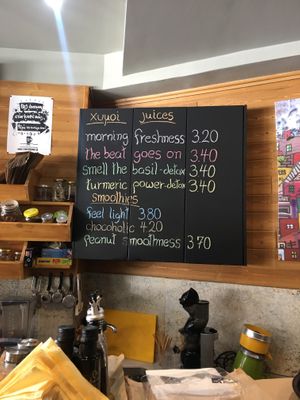 Χυμοί juices
morning freshness 3.20
the beat goes on 3.40
smell the basil-detox 3.40
turmeric power-detox 3.40
smoothies
feel light 3.80
chocoholic 4.20
peanut smoothness 3.70